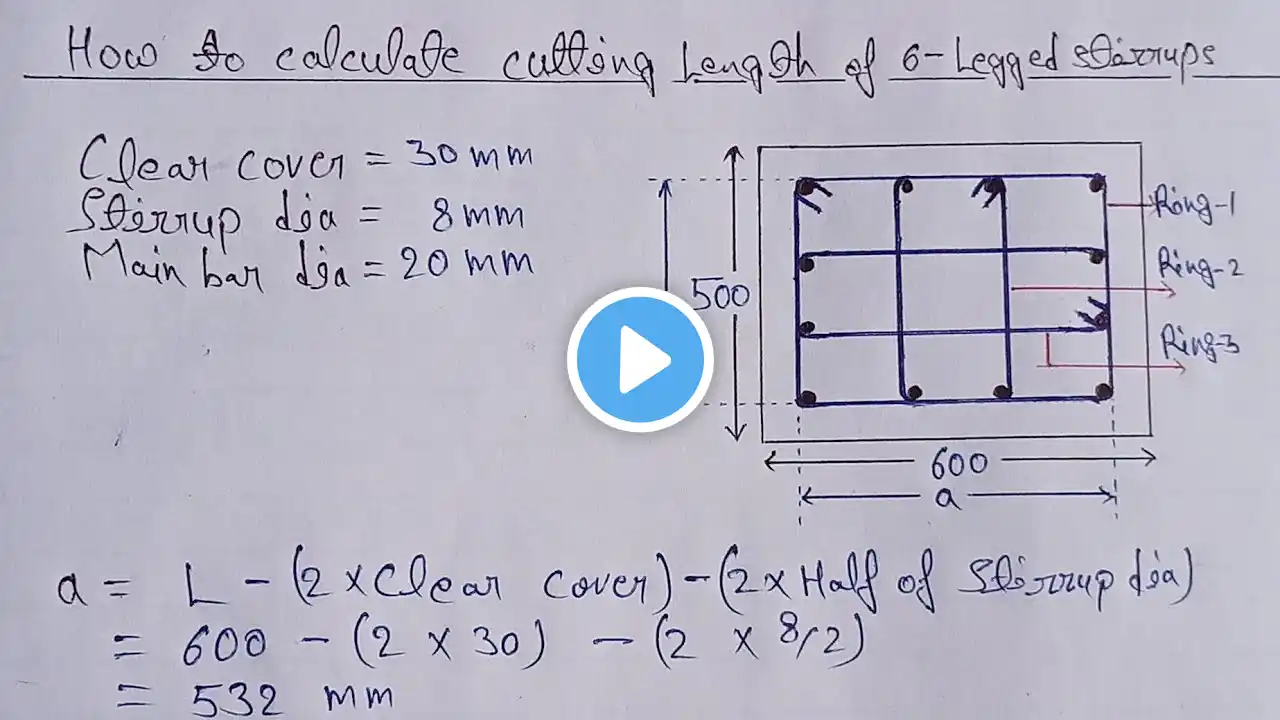 How to calculate cutting Length of 6-Legged stirrups
Clear cover = 30 mm
Stirrup dia = 8 mm
Main bar dia = 20 mm
Ring-1
Ring-2
500
Ring-3
600
a
a = L - (2 × Clear cover) - (2 × Half of Stirrup dia)
= 600 - (2 × 30) - (2 × 8/2)
= 532 mm